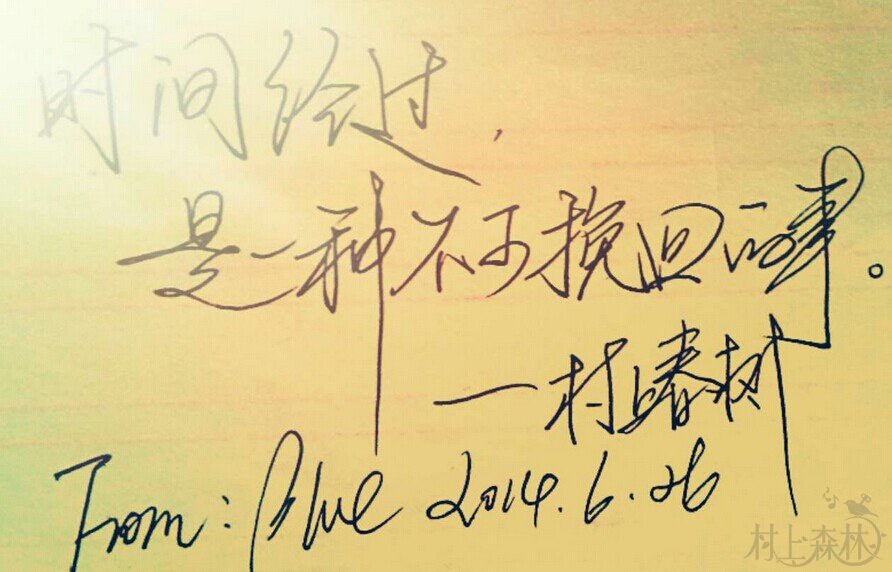 时间经过,
是一种不可挽回的事。
—村上春树
From: Blue 2014.6.26
村上森林